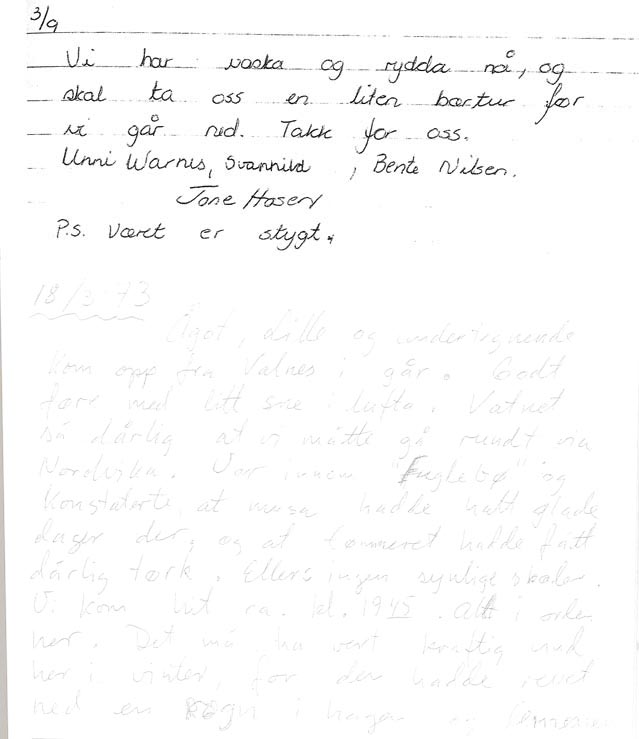 3/9
Vi har vaska og rydda nå, og
skal ta oss en liten bærtur før
vi går ned. Takk for oss.
Unni Warnis, Svannhild, Bente Nilsen.
Tone Hasen
P.s. Været er stygt.
18/3-73
Ågot, Lille og undertegnende
kom opp fra Valnes i går. Godt
føre med litt snø i lufta. Vatnet
så dårlig at vi måtte gå rundt via
Nordvika. Var innom "Fuglebø" og
konstaterte, at musa hadde hatt glade
dager der, og at tømmeret hadde fått
dårlig tørk. Ellers ingen synlige skader.
Vi kom hit ca. kl. 1945. Alt i orden
her. Det må ha vært kraftig vind
her i vinter, for den hadde revet
ned en rogn i hagen og